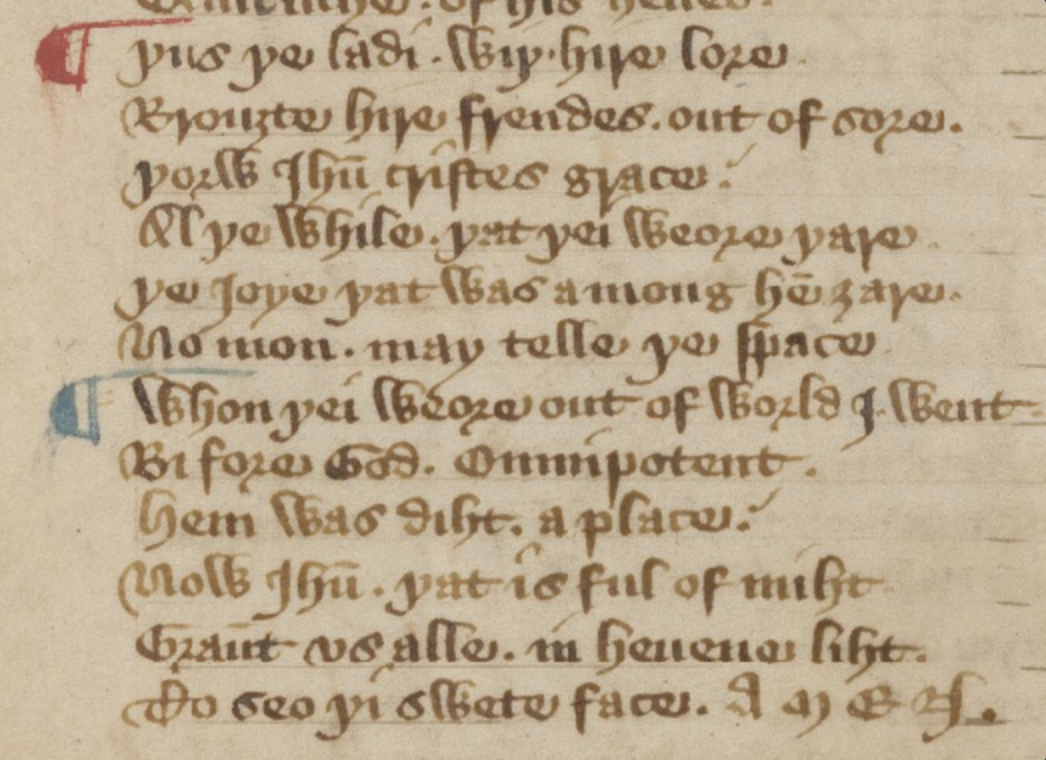 of his heued.
¶ Þus þe ladi . wiþ . hire lore
Brouȝte hire frendes . out of sore .
Þorw Ihū cristes grace .
Al þe while . þat þei weore þare .
Þe Ioye þat was among hē ȝare .
No mon . may telle þe space
¶ Whon þei weore out of world I . went
Bi fore God . Omnipotent .
Hem was diht . a place .
Now Ihū . þat is ful of miht
Graūt vs alle . in heuene liht .
To seo þi swete face . A M E N .